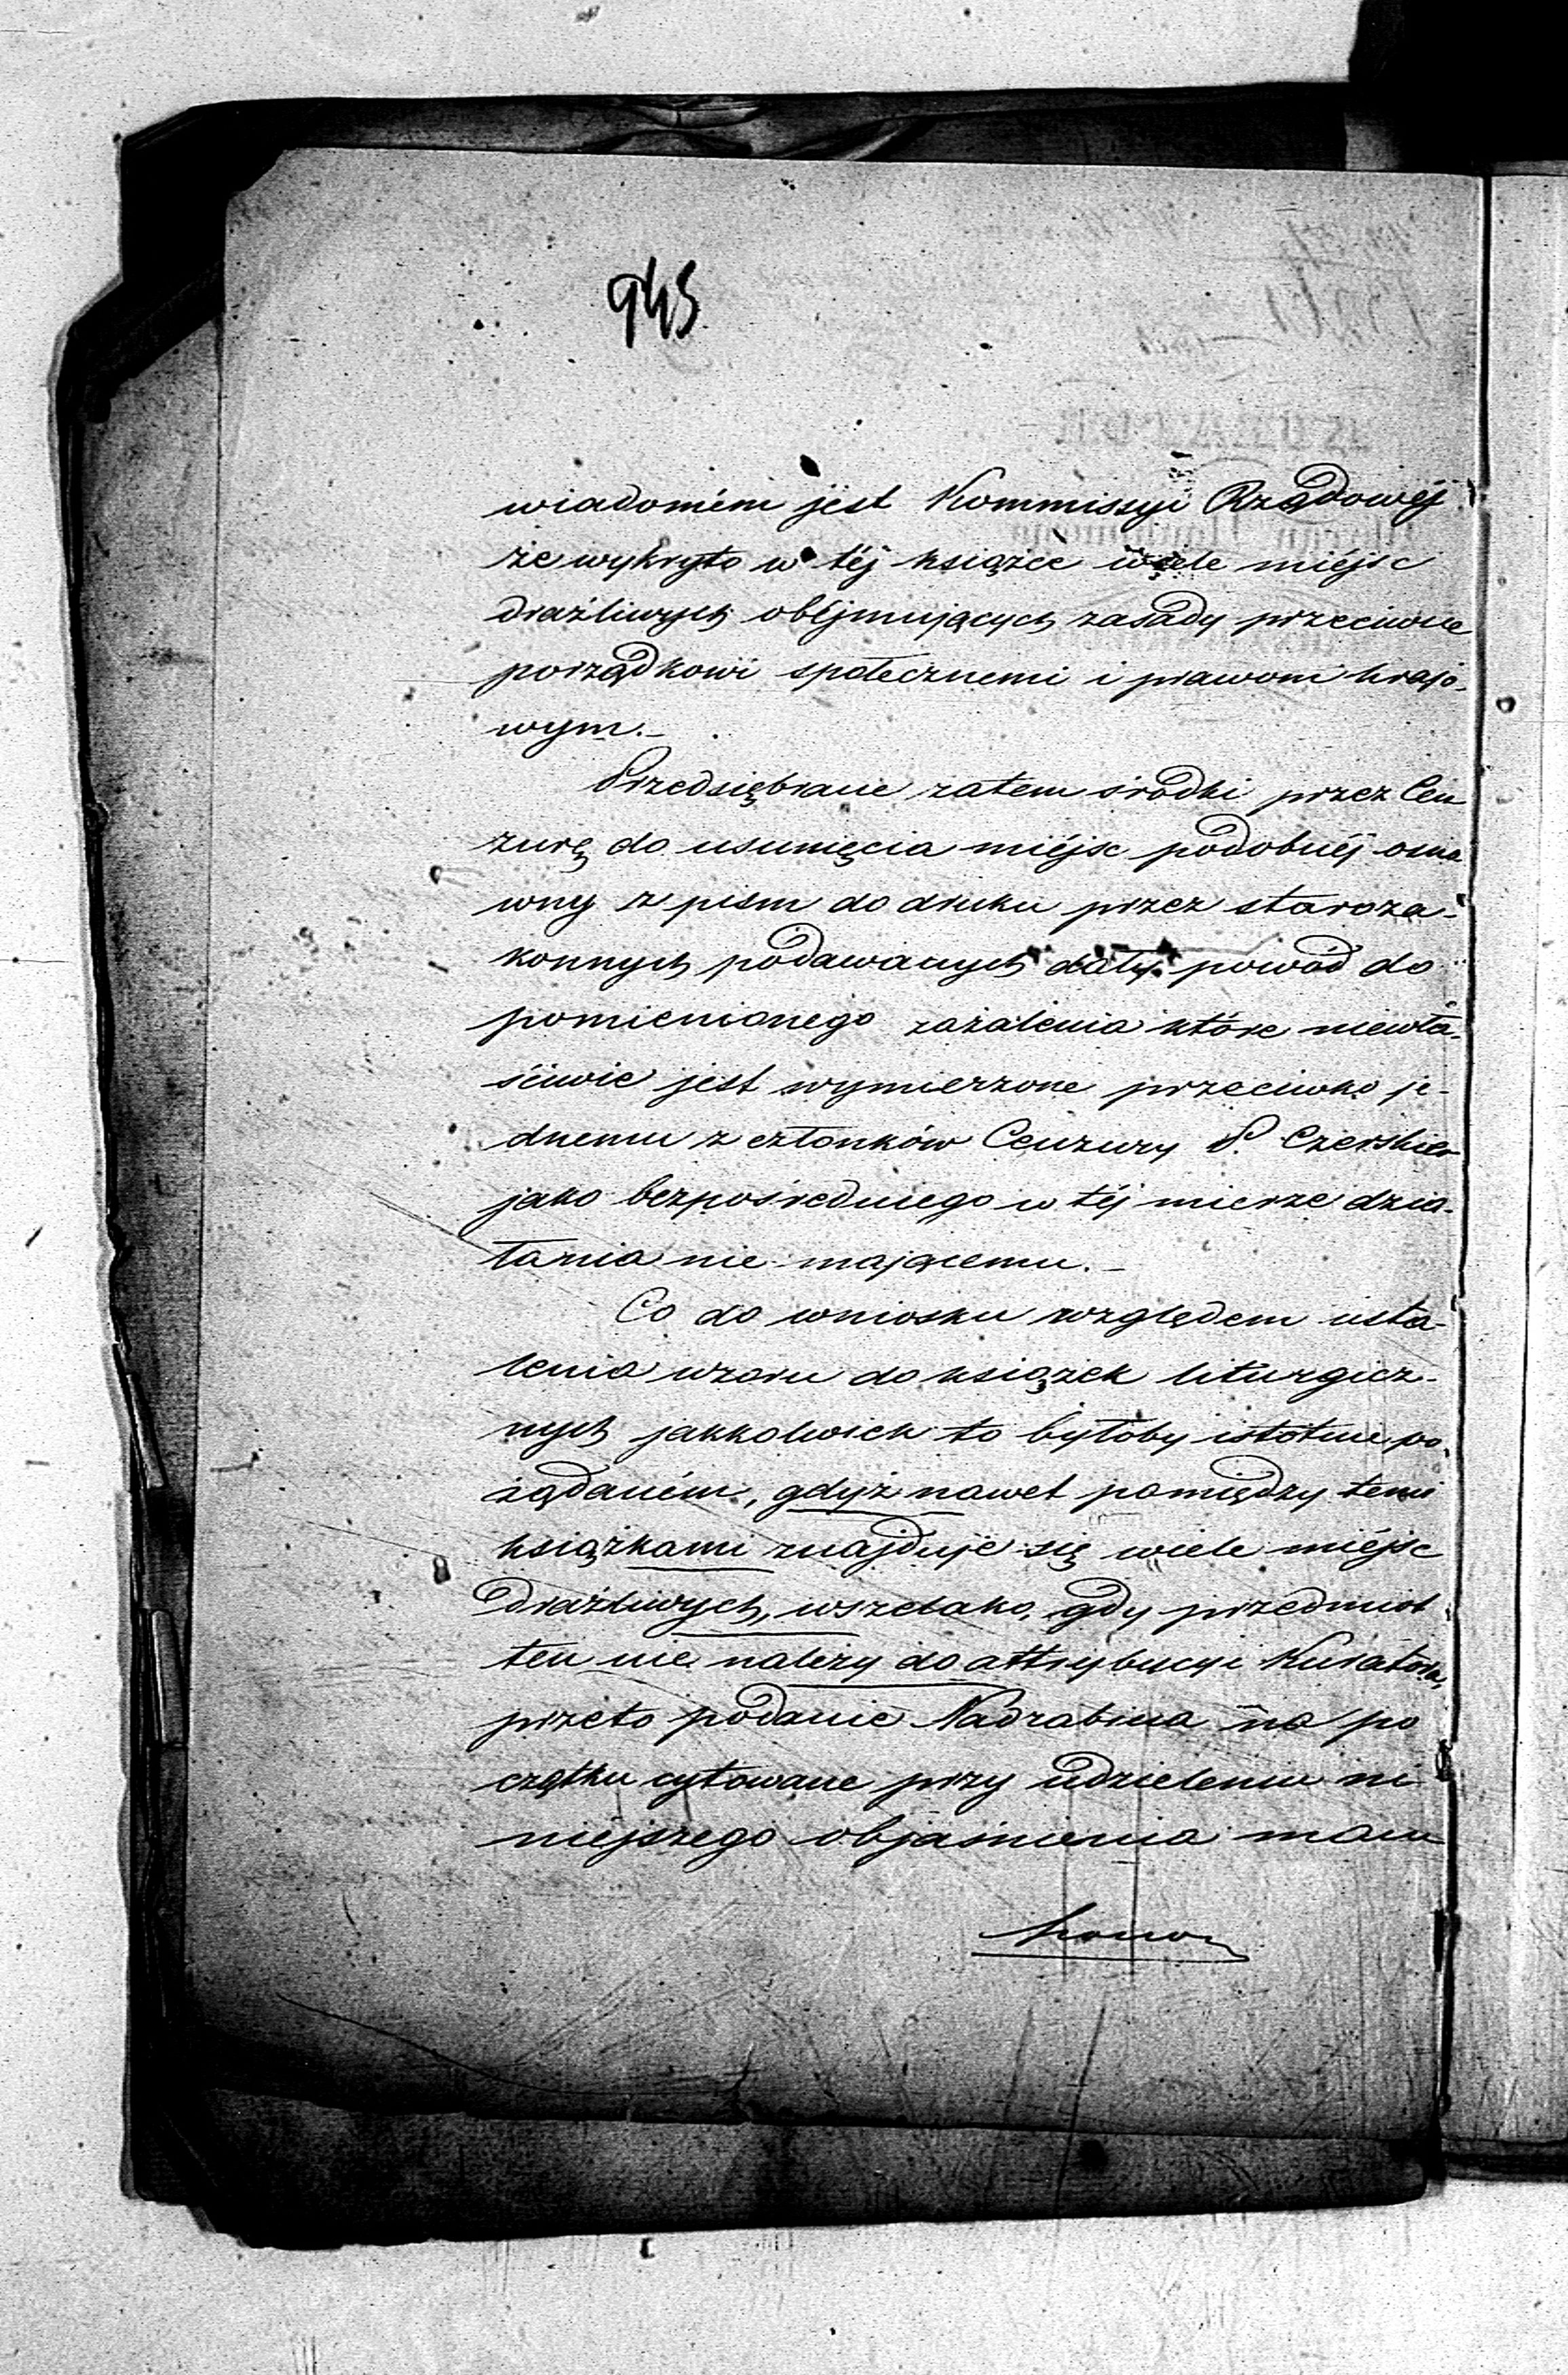 945
wiadomém jest Kommissyi Rządowéj
że wykryto w téj książce wiele miéjsc
drażliwych obéjmujących zasady przeciwne
porządkowi społecznemi i prawom krajo-
wym.-
Przedsiębrane zatem środki przez Cen
zurę do usunięcia miéjsc podobnéj osno
wny z pism do druku przez staroza-
konnych podawanych dały powód do
pomienionego zażalenia które niewła-
ściwie jest wymierzone przeciwko je-
dnemu z członków Cenzury P. Czerskiem
jako bezpośredniego w téj mierze dzia-
łania nie mającemu.-
Co do wniosku względem usta-
lenia wzoru do książek liturgicz-
nych jakkolwiek to byłoby istotnie po-
żądaném, gdyż nawet pomiędzy temi
książkami znajduje się wiele miéjsc
drażliwych, wszelako, gdy przedmiot
ten nie należy do attrybucyi Kuratora,
przeto podanie Nadrabina na po
czątku cytowane przy udzieleniu ni
niéjszego objaśnienia mam